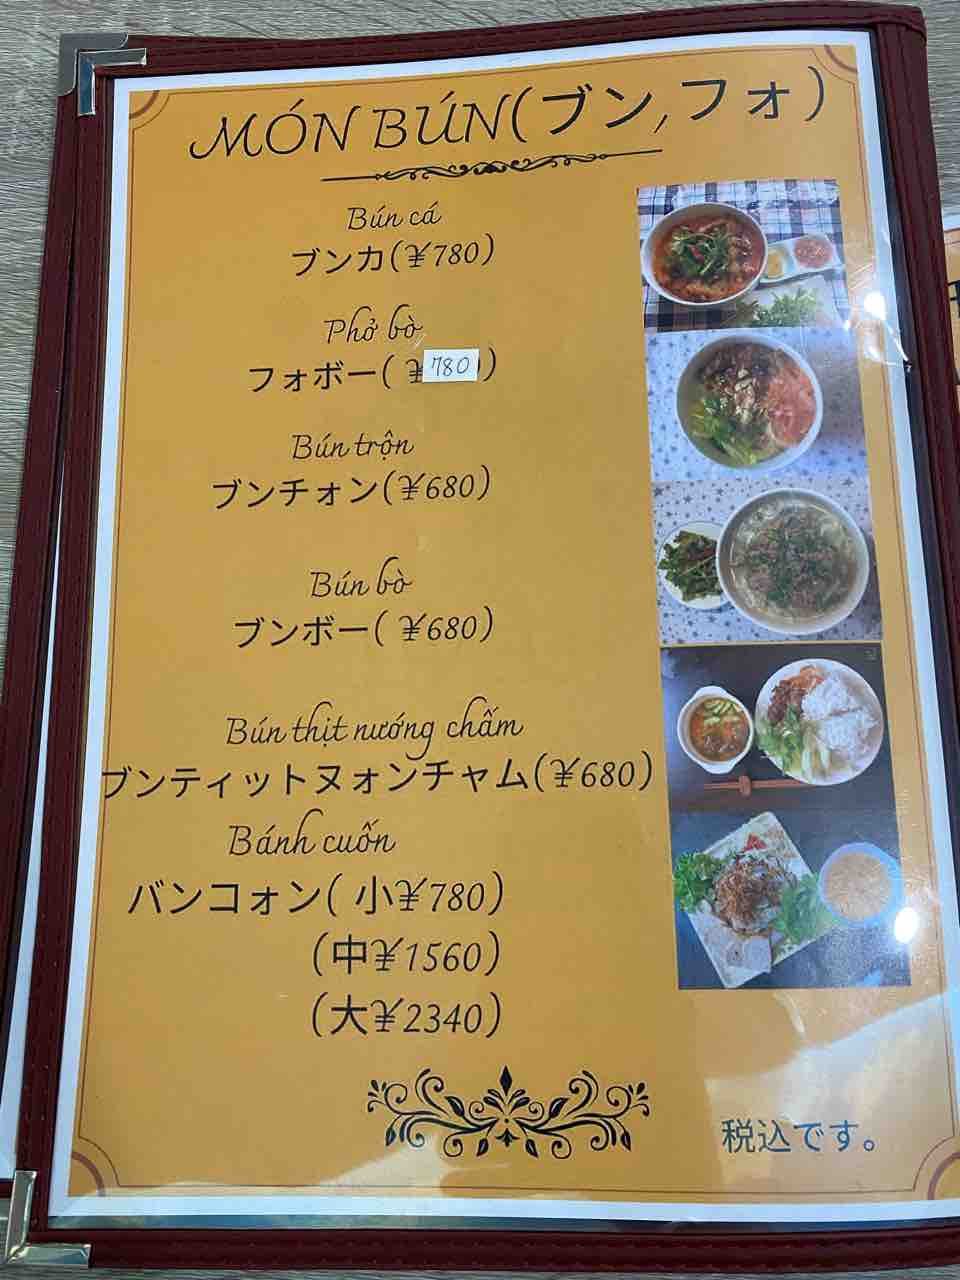 MÓN BÚN(ブン,フォ)
Bún cá
ブンカ(¥780)
Phở bò
フォボー( ¥780)
Bún trộn
ブンチォン(¥680)
Bún bò
ブンボー( ¥680)
Bún thịt nướng chấm
ブンティットヌォンチャム(¥680)
Bánh cuốn
バンコォン( 小¥780)
(中¥1560)
(大¥2340)
税込です。